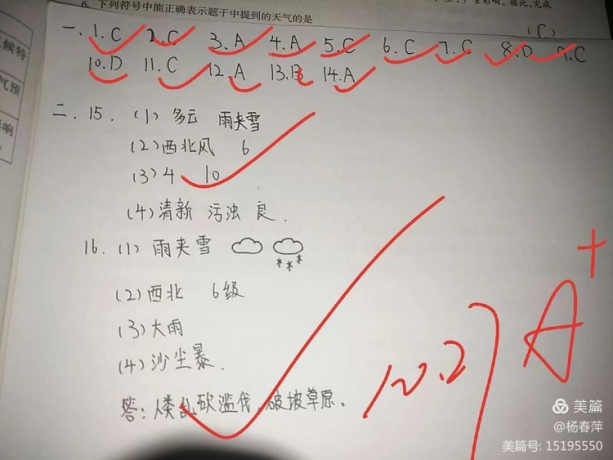 6. 下列符号中能正确表示题干中提到的天气的是
(C)
一. 1. C 2. C 3. A 4. A 5. C 6. C 7. C 8. D 9. C
10. D 11. C 12. A 13. B 14. A
二. 15. (1) 多云 雨夹雪
(2) 西北风 6
(3) 4 10
(4) 清新 污浊 良.
16. (1) 雨夹雪
(2) 西北 6级
(3) 大雨
(4) 沙尘暴.
答: 人类乱砍滥伐, 破坡草原.
10.27 A+
候特
气预
影响
美篇
@杨春萍
美篇号: 15195550